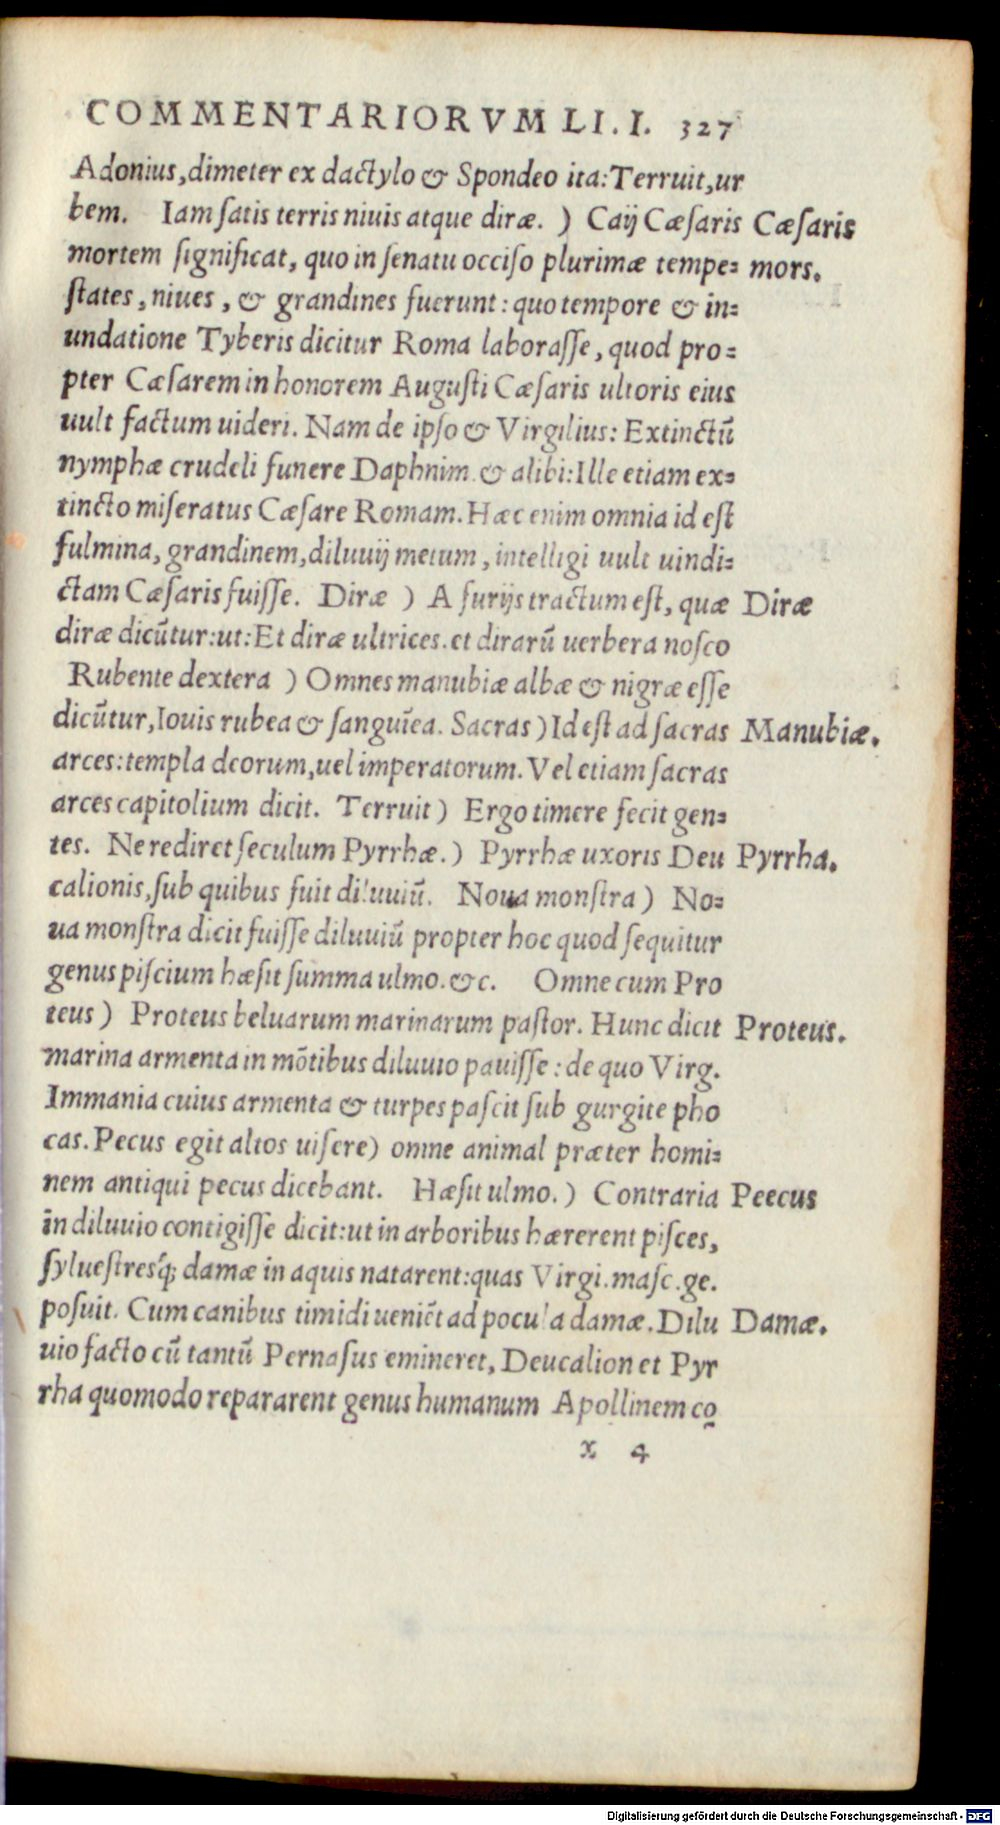 COMMENTARIORVM LI. I. 327
Adonius, dimeter ex dactylo & Spondeo ita: Terruit, ur
bem. Iam ſatis terris niuis atque diræ. ) Caij Cæſaris Cæſaris
mortem ſignificat, quo in ſenatu occiſo plurimæ tempe= mors.
ſtates, niues, & grandines fuerunt: quo tempore & in=
undatione Tyberis dicitur Roma laboraſſe, quod pro=
pter Cæſarem in honorem Auguſti Cæſaris ultoris eius
uult factum uideri. Nam de ipſo & Virgilius: Extinctũ
nymphæ crudeli funere Daphnim. & alibi: Ille etiam ex=
tincto miſeratus Cæſare Romam. Hæc enim omnia id eſt
fulmina, grandinem, diluuij metum, intelligi uult uindi=
ctam Cæſaris fuiſſe. Diræ ) A furijs tractum eſt, quæ Diræ
diræ dicũtur: ut: Et diræ ultrices. et dirarũ uerbera noſco
Rubente dextera ) Omnes manubiæ albæ & nigræ eſſe
dicũtur, Iouis rubea & ſanguĩea. Sacras ) Id eſt ad ſacras Manubiæ.
arces: templa deorum, uel imperatorum. Vel etiam ſacras
arces capitolium dicit. Terruit ) Ergo timere fecit gen=
tes. Ne rediret ſeculum Pyrrhæ. ) Pyrrhæ uxoris Deu Pyrrha.
calionis, ſub quibus fuit diluuiũ. Noua monſtra ) No=
ua monſtra dicit fuiſſe diluuiũ propter hoc quod ſequitur
genus piſcium hæſit ſumma ulmo. &c. Omne cum Pro
teus ) Proteus beluarum marinarum paſtor. Hunc dicit Proteus.
marina armenta in mõtibus diluuio pauiſſe: de quo Virg.
Immania cuius armenta & turpes paſcit ſub gurgite pho
cas. Pecus egit altos uiſere) omne animal præter homi=
nem antiqui pecus dicebant. Hæſit ulmo. ) Contraria Peecus
in diluuio contigiſſe dicit: ut in arboribus hærerent piſces,
ſylueſtresq́; damæ in aquis natarent: quas Virgi. maſc. ge.
poſuit. Cum canibus timidi ueniẽt ad pocula damæ. Dilu Damæ.
uio facto cũ tantũ Pernaſus emineret, Deucalion et Pyr
rha quomodo repararent genus humanum Apollinem co
x 4
Digitalisierung gefördert durch die Deutsche Forschungsgemeinschaft - DFG